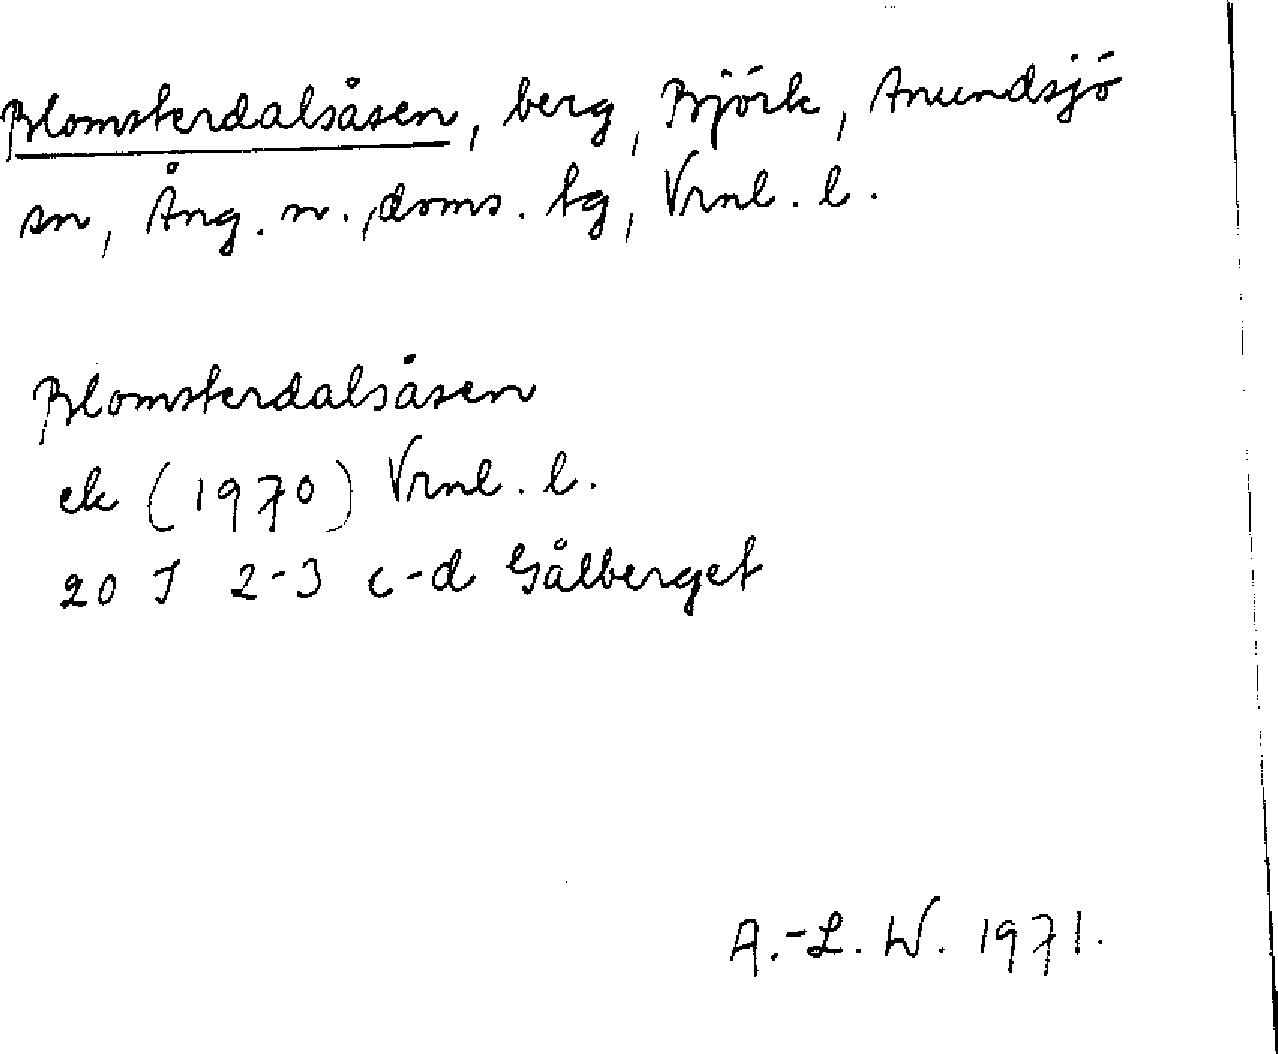 Blomsterdalsåsen, berg, Björk, Anundsjö
sn, Ång. n., doms. tg, Vrnl. l.
Blomsterdalsåsen
ek (1970) Vrnl. l.
20 J 2-3 c-d Gålberget
A.-L. W. 1971.